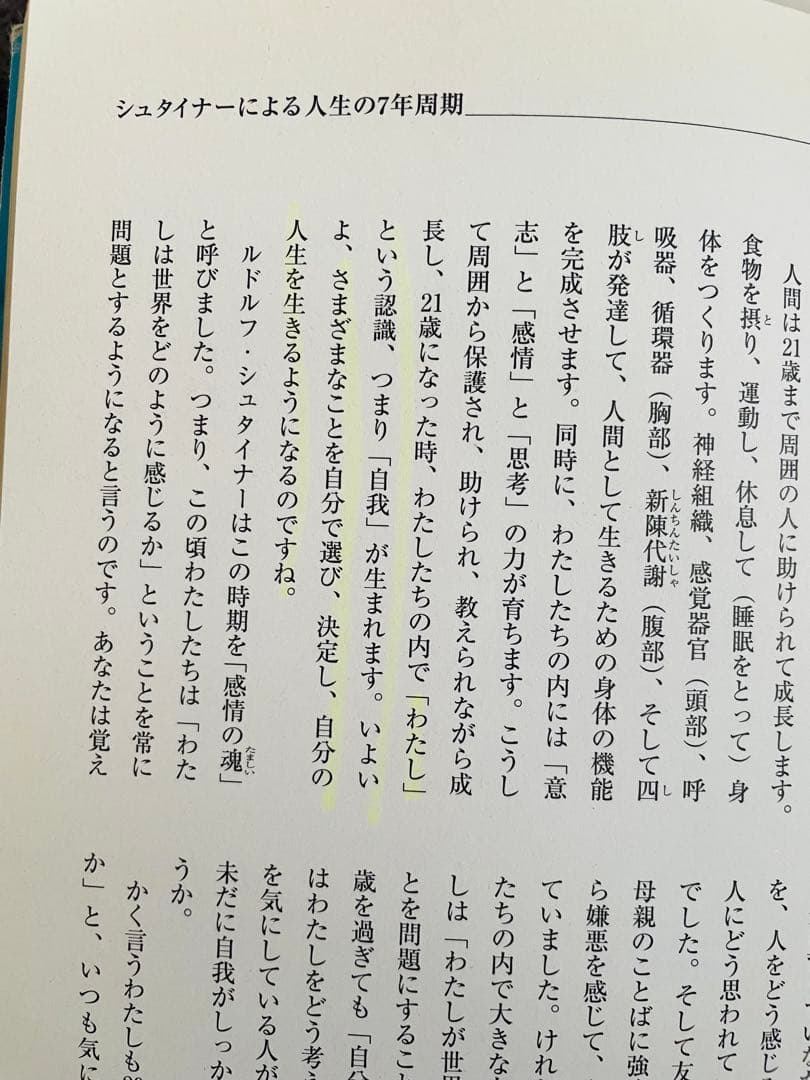 シュタイナーによる人生の7年周期
人間は21歳まで周囲の人に助けられて成長します。
食物を摂り、運動し、休息して（睡眠をとって）身
体をつくります。神経組織、感覚器官（頭部）、呼
吸器、循環器（胸部）、新陳代謝（腹部）、そして四
肢が発達して、人間として生きるための身体の機能
を完成させます。同時に、わたしたちの内には「意
志」と「感情」と「思考」の力が育ちます。こうし
て周囲から保護され、助けられ、教えられながら成
長し、21歳になった時、わたしたちの内で「わたし」
という認識、つまり「自我」が生まれます。いよい
よ、さまざまなことを自分で選び、決定し、自分の
人生を生きるようになるのですね。
ルドルフ・シュタイナーはこの時期を「感情の魂」
と呼びました。つまり、この頃わたしたちは「わた
しは世界をどのように感じるか」ということを常に
問題とするようになると言うのです。あなたは覚え
を、人をどう感じ
人にどう思われて
でした。そして友
母親のことばに強
ら嫌悪を感じて、
ていました。けれ
たちの内で大きな
しは「わたしが世
とを問題にするこ
歳を過ぎても「自
はわたしをどう考
を気にしている人が
未だに自我がしっか
うか。
かく言うわたしも
か」と、いつも気に